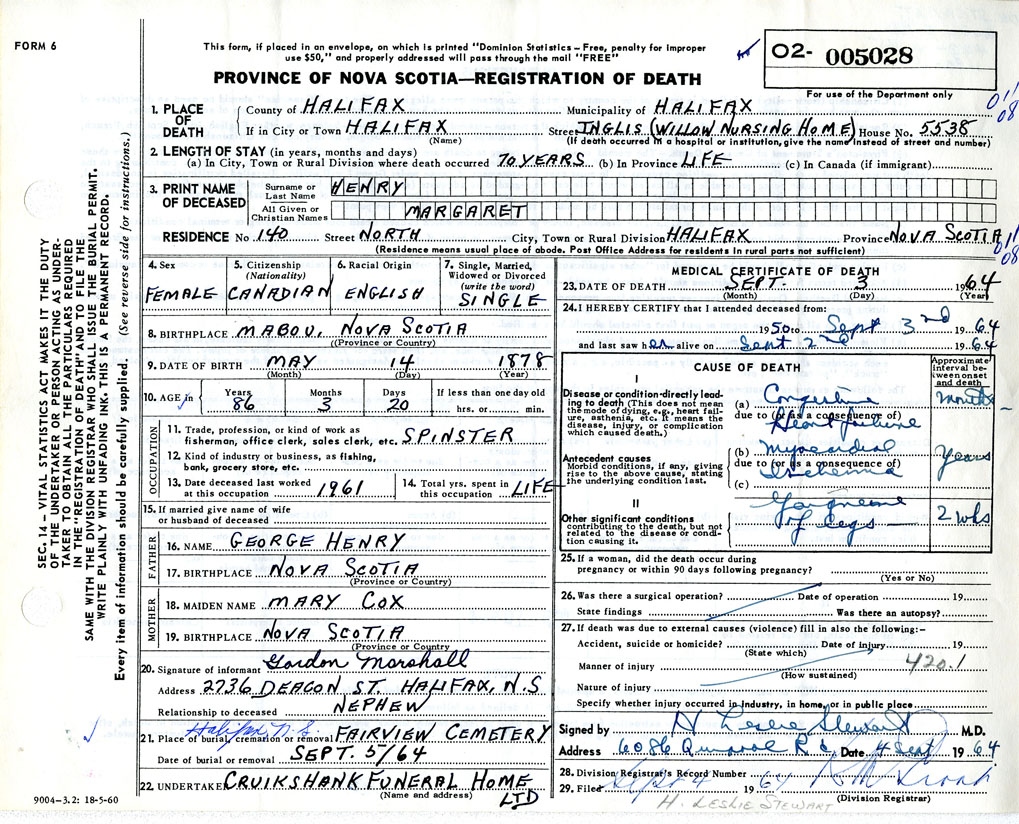 FORM 6
This form, if placed in an envelope, on which is printed "Dominion Statistics – Free, penalty for improper
use $50," and properly addressed will pass through the mail "FREE"
02- 005028
For use of the Department only
PROVINCE OF NOVA SCOTIA—REGISTRATION OF DEATH
011
08
1. PLACE OF DEATH
County of HALIFAX Municipality of HALIFAX
If in City or Town HALIFAX Street INGLIS (WILLOW NURSING HOME) House No. 5538
(Name) (If death occurred in a hospital or institution, give the name instead of street and number)
2. LENGTH OF STAY (in years, months and days)
(a) In City, Town or Rural Division where death occurred 70 YEARS (b) In Province LIFE (c) In Canada (if immigrant)
3. PRINT NAME OF DECEASED
Surname or Last Name HENRY
All Given or Christian Names MARGARET
RESIDENCE No 140 Street NORTH City, Town or Rural Division HALIFAX Province NOVA SCOTIA
(Residence means usual place of abode. Post Office Address for residents in rural parts not sufficient)
011
08
4. Sex FEMALE
5. Citizenship (Nationality) CANADIAN
6. Racial Origin ENGLISH
7. Single, Married, Widowed or Divorced (write the word) SINGLE
8. BIRTHPLACE MABOU, NOVA SCOTIA
(Province or Country)
9. DATE OF BIRTH MAY 14 1878
(Month) (Day) (Year)
10. AGE in Years 86 Months 3 Days 20 If less than one day old hrs. or min.
OCCUPATION
11. Trade, profession, or kind of work as fisherman, office clerk, sales clerk, etc. SPINSTER
12. Kind of industry or business, as fishing, bank, grocery store, etc.
13. Date deceased last worked at this occupation 1961
14. Total yrs. spent in this occupation LIFE
15. If married give name of wife or husband of deceased
FATHER
16. NAME GEORGE HENRY
17. BIRTHPLACE NOVA SCOTIA
(Province or Country)
MOTHER
18. MAIDEN NAME MARY COX
19. BIRTHPLACE NOVA SCOTIA
(Province or Country)
20. Signature of informant Gordon Marshall
Address 2736 DEACON ST. HALIFAX, N.S
Relationship to deceased NEPHEW
Halifax N.S.
21. Place of burial, cremation or removal FAIRVIEW CEMETERY
Date of burial or removal SEPT. 5/64
22. UNDERTAKER CRUIKSHANK FUNERAL HOME LTD
(Name and address)
9004–3.2: 18-5-60
MEDICAL CERTIFICATE OF DEATH
23. DATE OF DEATH SEPT. 3 1964
(Month) (Day) (Year)
24. I HEREBY CERTIFY that I attended deceased from:
1950 to Sept 3nd 1964
and last saw her alive on Sept 2nd 1964
CAUSE OF DEATH
Approximate interval between onset and death
I
Disease or condition directly leading to death (This does not mean the mode of dying, e.g., heart failure, asthenia, etc. It means the disease, injury, or complication which caused death.)
(a) Congestive Heart failure months
due to (or as a consequence of)
Antecedent causes
Morbid conditions, if any, giving rise to the above cause, stating the underlying condition last.
(b) Myocardial Ischemia years
due to (or as a consequence of)
(c)
II
Other significant conditions contributing to the death, but not related to the disease or condition causing it.
Gangrene of legs 2 wks
25. If a woman, did the death occur during
pregnancy or within 90 days following pregnancy?
(Yes or No)
26. Was there a surgical operation? Date of operation 19
State findings Was there an autopsy?
27. If death was due to external causes (violence) fill in also the following:–
Accident, suicide or homicide? Date of injury 19
(State which)
420.1
Manner of injury
(How sustained)
Nature of injury
Specify whether injury occurred in industry, in home, or in public place
Signed by H Leslie Stewart M.D.
Address 6086 Rd. Date 4 Sept 1964
28. Division Registrar's Record Number
29. Filed Sept 4 1964
(Division Registrar)
H. LESLIE STEWART
SEC. 14 – VITAL STATISTICS ACT MAKES IT THE DUTY
OF THE UNDERTAKER OR PERSON ACTING AS UNDER-
TAKER TO OBTAIN ALL THE PARTICULARS REQUIRED
IN THE "REGISTRATION OF DEATH" AND TO FILE THE
SAME WITH THE DIVISION REGISTRAR WHO SHALL ISSUE THE BURIAL PERMIT.
WRITE PLAINLY WITH UNFADING INK. THIS IS A PERMANENT RECORD.
Every item of information should be carefully supplied. (See reverse side for instructions.)